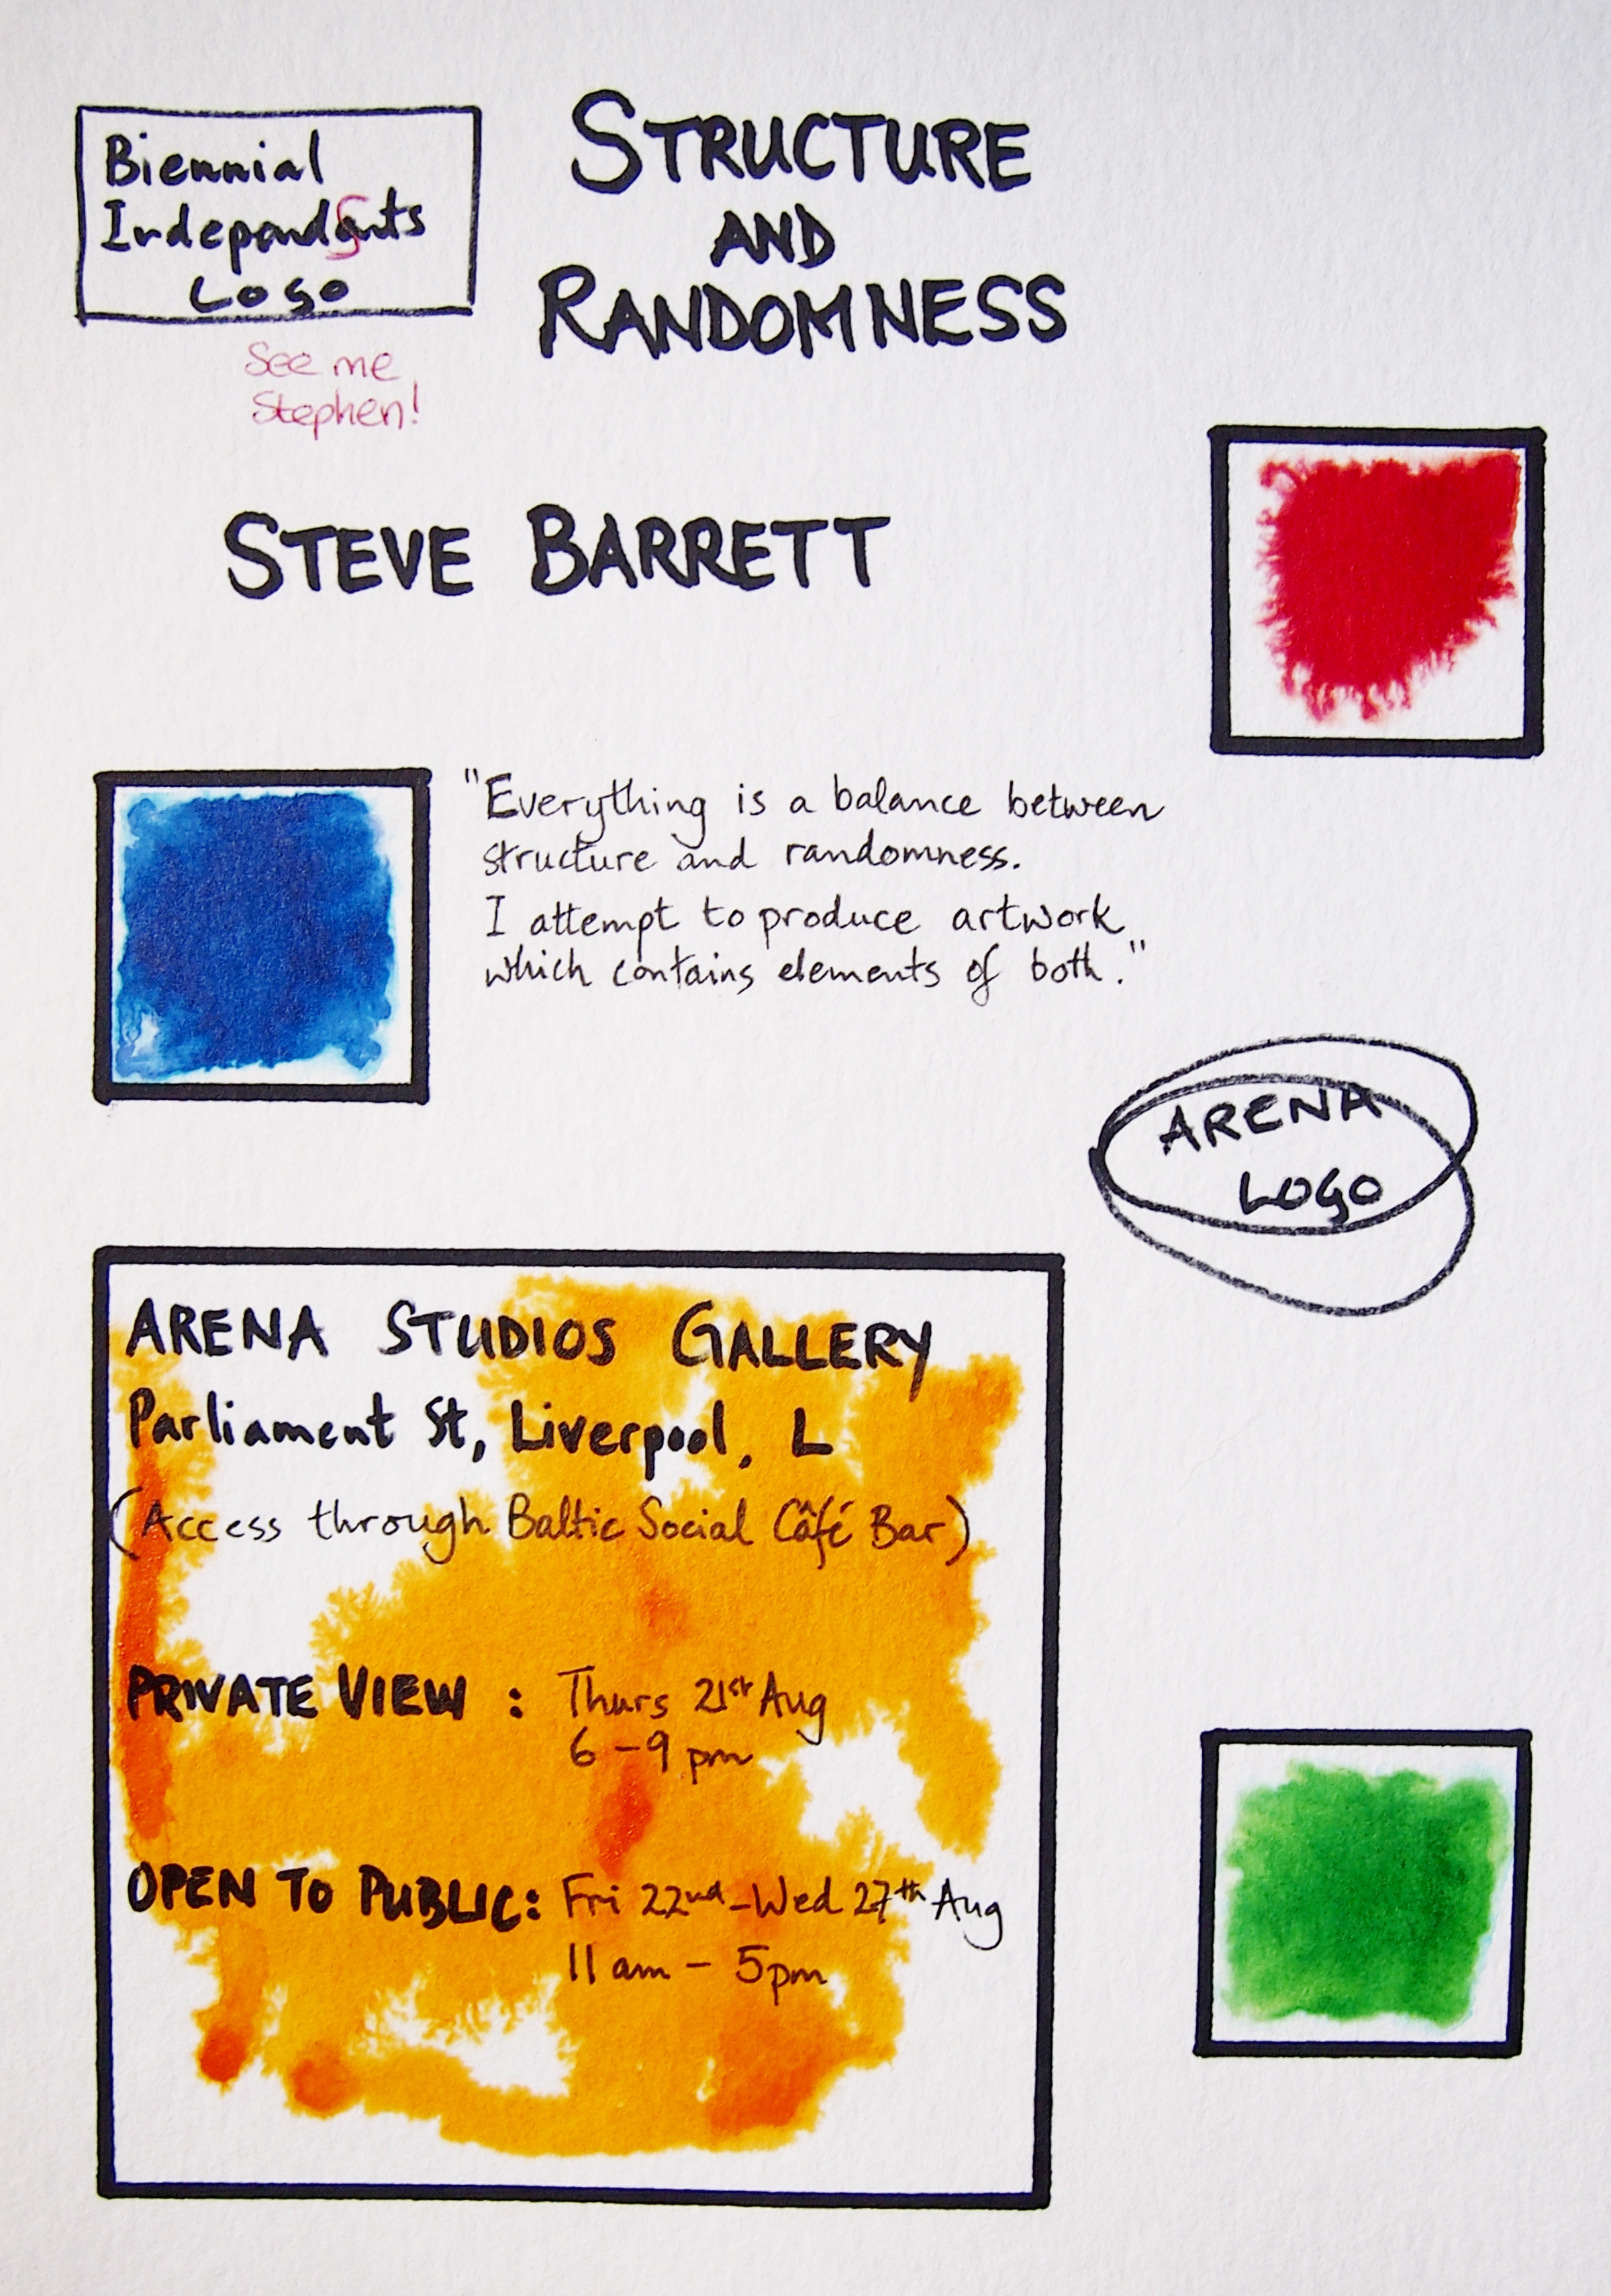 Biennial
Independants
Logo
See me
Stephen!
STRUCTURE
AND
RANDOMNESS
STEVE BARRETT
"Everything is a balance between
structure and randomness.
I attempt to produce artwork
which contains elements of both."
ARENA
LOGO
ARENA STUDIOS GALLERY
Parliament St, Liverpool, L
(Access through Baltic Social Câfé Bar)
PRIVATE VIEW : Thurs 21st Aug
6-9 pm
OPEN TO PUBLIC: Fri 22nd-Wed 27th Aug
11 am - 5pm